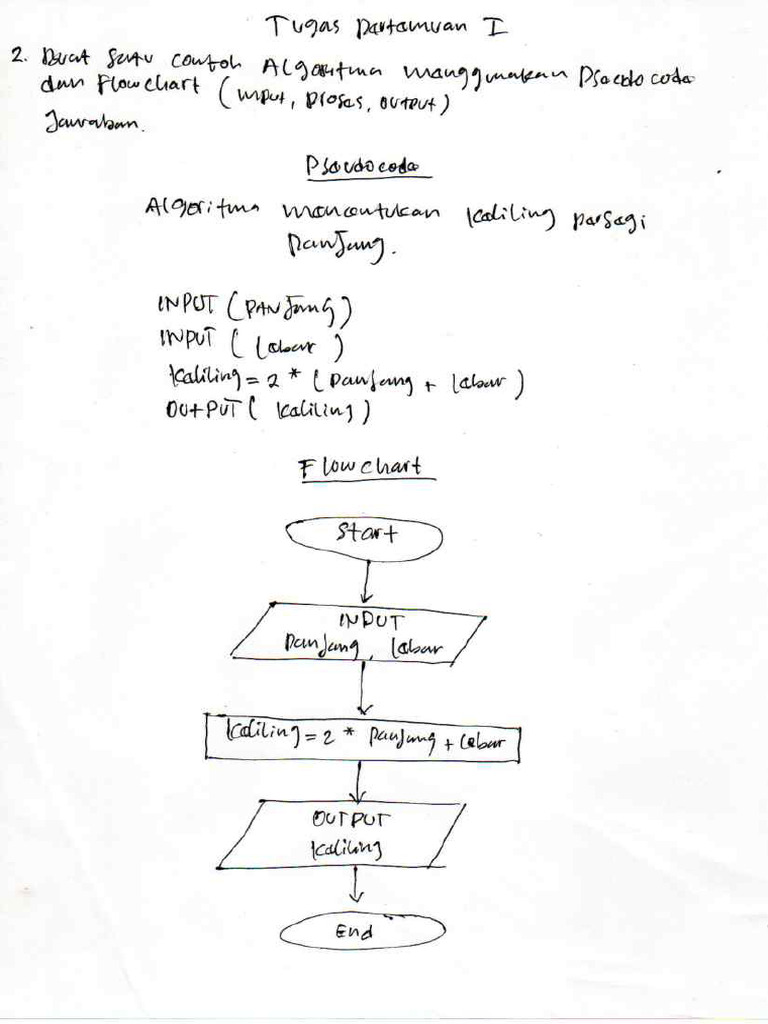 Tugas Pertemuan I
2. Buat Satu contoh Algoritma menggunakan Pseudo code
dan Flowchart (input, proses, output)
Jawaban.
Pseudocode
Algoritma menentukan keliling persegi
panjang.
INPUT (PANjang)
INPUT ( lebar )
keliling = 2 * ( panjang + lebar )
OUtPUT ( keliling )
Flowchart
Start
INPUT
panjang, lebar
keliling = 2 * panjang + lebar
OUTPUT
keliling
End